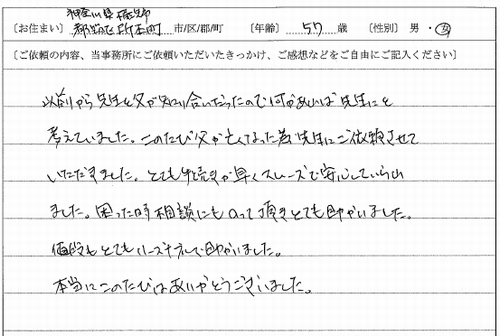 〔お住まい〕神奈川県 市/区/郡/町 〔年齢〕57 歳 〔性別〕男 ・ 女
〔ご依頼の内容、当事務所にご依頼いただいたきっかけ、ご感想などをご自由にご記入ください〕
以前から先生と父が知り合いだったので何かあれば先生にと
考えていました。このたび父が亡くなった為先生にご依頼させて
いただきました。とても手続きが早くスムーズで安心していられ
ました。困った時相談にものって頂きとても助かりました。
価格もとてもリーズナブルで助かりました。
本当にこのたびはありがとうございました。